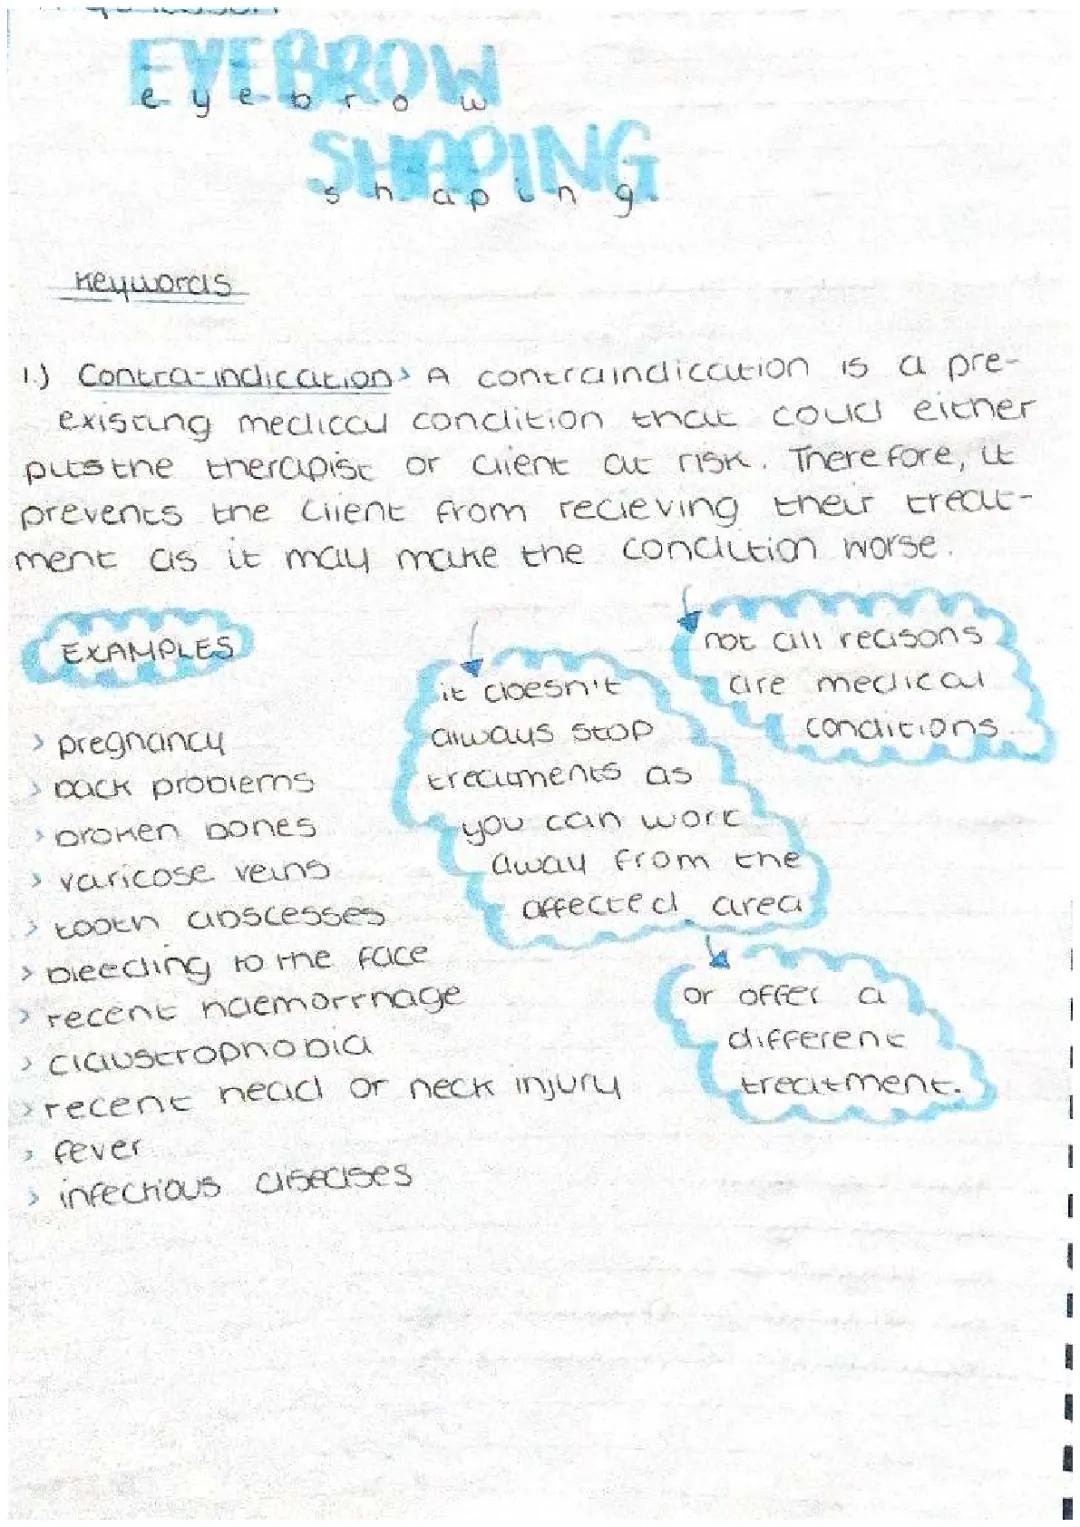 EYEBROW
eyebrow
SHAPING
shaping
Keywords
1.) Contra-indication> A contraindication is a pre-
existing medical condition that could either
puts the therapist or client at risk. Therefore, it
prevents the client from recieving their treat-
ment as it may make the condition worse.
EXAMPLES
> pregnancy
> back problems
> broken bones
> varicose veins
> tooth abscesses
> bleeding to the face
> recent haemorrhage
> claustrophobia
> recent head or neck injury
> fever
> infectious diseases
it doesn't
always stop
treatments as
you can work
away from the
affected area
not all reasons
are medical
conditions
or offer a
different
treatment.